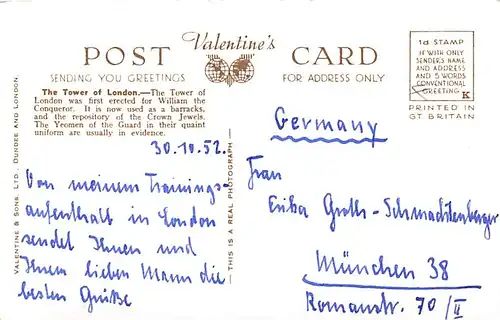 POST Valentine's CARD
SENDING YOU GREETINGS
FOR ADDRESS ONLY
1d STAMP
IF WITH ONLY
SENDER'S NAME
AND ADDRESS
AND 5 WORDS
CONVENTIONAL
GREETING
K
PRINTED IN
GT BRITAIN
The Tower of London.—The Tower of
London was first erected for William the
Conqueror. It is now used as a barracks,
and the repository of the Crown Jewels.
The Yeomen of the Guard in their quaint
uniform are usually in evidence.
VALENTINE & SONS, LTD., DUNDEE AND LONDON.
THIS IS A REAL PHOTOGRAPH
30.10.52.
Von meinem Trainings-
aufenthalt in London
sendet Ihnen und
Ihrem lieben Mann die
besten Grüße
Germany
Frau
Erika Groth-Schmachtenberger
München 38
Romanstr. 70/II